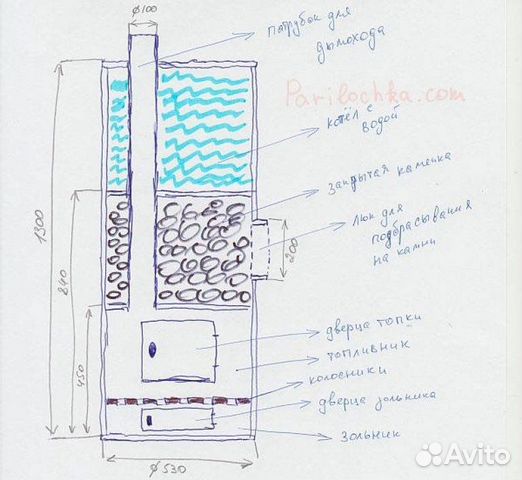 ø100
патрубок для
дымохода
Parilochka.com
котёл с
водой
закрытая каменка
люк для
подбрасывания
на камни
200
1300
840
450
дверца топки
топливник
колосники
дверца зольника
зольник
ø530
Avito